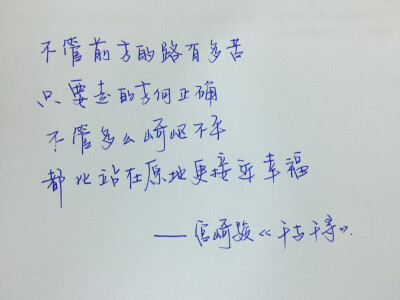 不管前方的路有多苦
只要走的方向正确
不管多么崎岖不平
都比站在原地更接近幸福
——宫崎骏《千与千寻》.